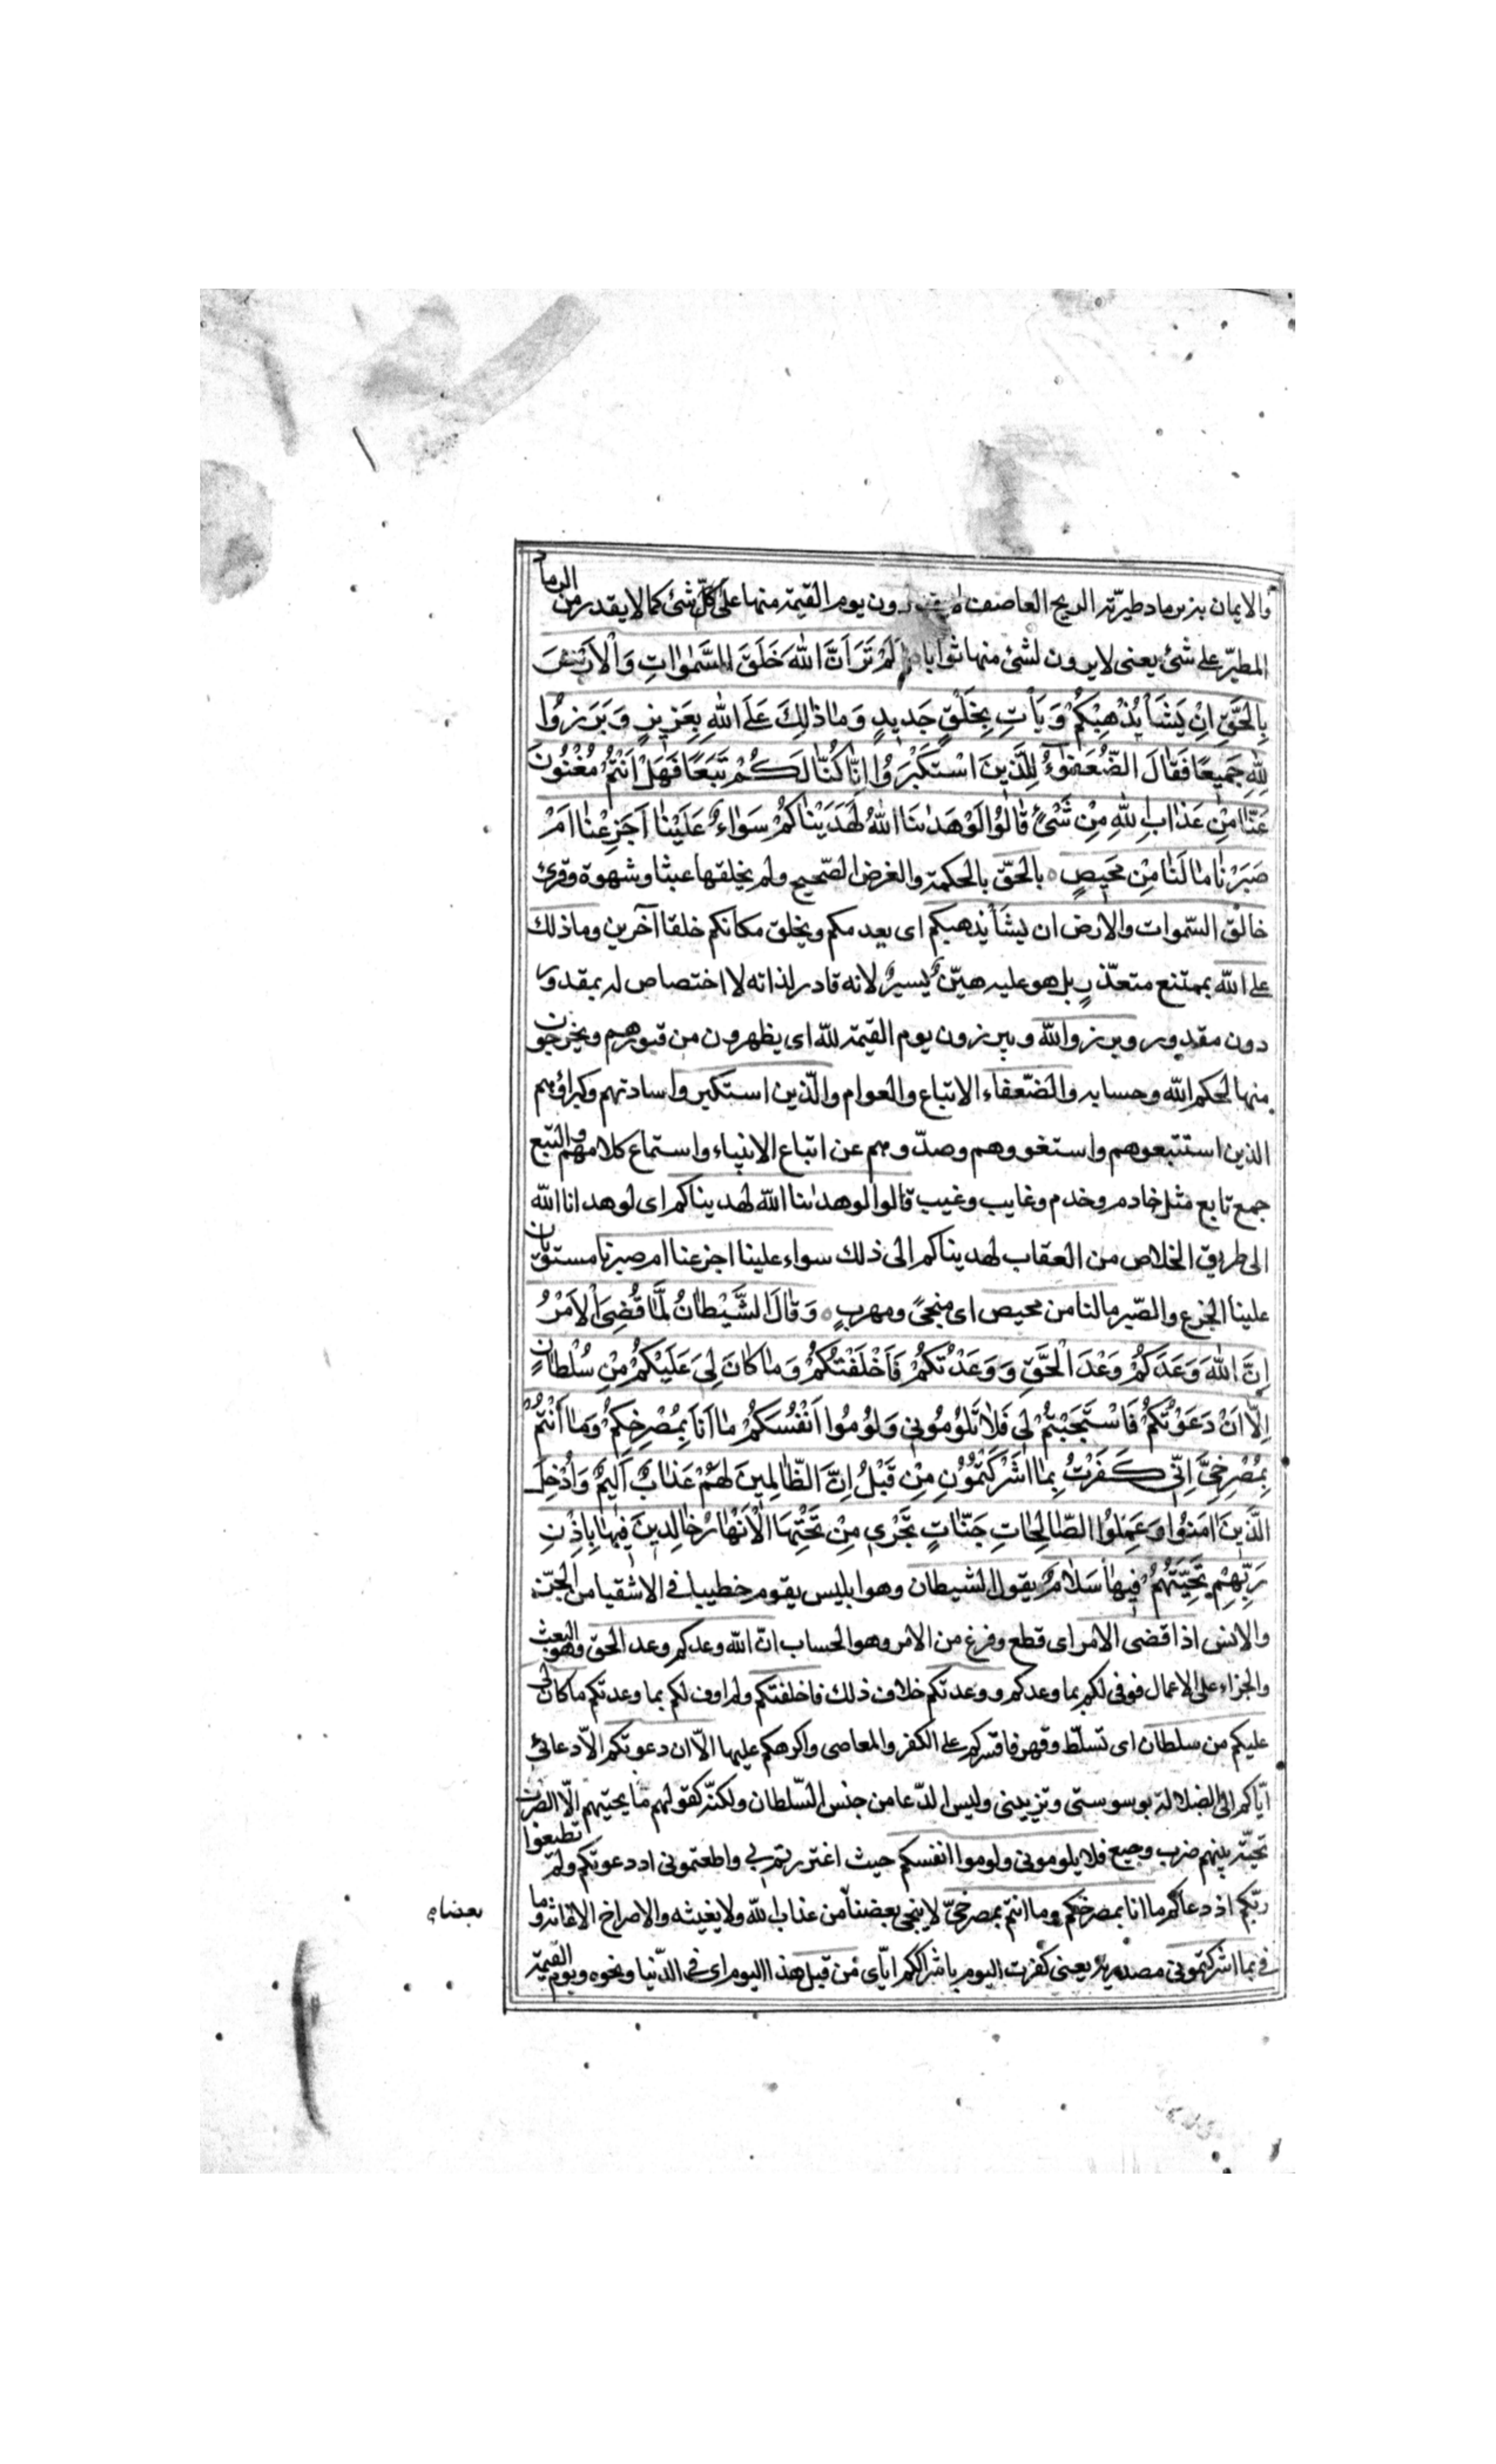 والايمان بزبر ماد طيرته الريح العاصف لا يقدرون يوم القيمة منها على كل شئ كما لا يقدر من الرماد
المطيّر على شئ يعنى لا يرون لشئ منها ثوابا اَلَمْ تَرَ اَنَّ اللّٰهَ خَلَقَ السَّمٰوٰاتِ وَالْاَرْضَ
بِالْحَقِّ اِنْ يَشَأْ يُذْهِبْكُمْ وَيَأْتِ بِخَلْقٍ جَديدٍ وَمٰا ذٰلِكَ عَلَى اللّٰهِ بِعَزيزٍ وَبَرَزُوا
لِلّٰهِ جَميعًا فَقٰالَ الضُّعَفٰؤُا لِلَّذينَ اسْتَكْبَرُوا اِنّٰا كُنّٰا لَكُمْ تَبَعًا فَهَلْ اَنْتُمْ مُغْنُونَ
عَنّٰا مِنْ عَذٰابِ اللّٰهِ مِنْ شَىْءٍ قٰالُوا لَوْ هَدٰينَا اللّٰهُ لَهَدَيْنٰاكُمْ سَوٰاءٌ عَلَيْنٰا اَجَزِعْنٰا اَمْ
صَبَرْنٰا مٰا لَنٰا مِنْ مَحيصٍ ٥ بالحقّ بالحكمة والغرض الصّحيح ولم يخلقها عبثا وشهوة وقرئ
خالق السّموات والارض ان يشأ يذهبكم اى يعدمكم ويخلق مكانكم خلقا آخرين وما ذلك
على اللّه بممتنع متعذّرٍ بل هو عليه هيّنٌ يسيرٌ لانه قادر لذاته لا اختصاص له بمقدور
دون مقدور وبرزوا للّه ويبرزون يوم القيمة للّه اى يظهرون من قبورهم ويخرجون
منها لحكم اللّه وحسابه والضّعفاء الاتباع والعوام والّذين استكبروا سادتهم وكبراؤهم
الذين استتبعوهم واستغووهم وصدّوهم عن اتباع الانبياء واستماع كلامهم والتبع
جمع تابع مثل خادم وخدم وغايب وغيب قالوا لو هدٰينا اللّه لهديناكم اى لو هدانا اللّه
الى طريق الخلاص من العقاب لهديناكم الى ذلك سواء علينا اجزعنا ام صبرنا مستويان
علينا الجزع والصّبر ما لنا من محيص اى منجىً ومهربٍ ٥ وَقٰالَ الشَّيْطٰانُ لَمّٰا قُضِىَ الْاَمْرُ
اِنَّ اللّٰهَ وَعَدَكُمْ وَعْدَ الْحَقِّ وَوَعَدْتُكُمْ فَاَخْلَفْتُكُمْ وَمٰا كٰانَ لِىَ عَلَيْكُمْ مِنْ سُلْطٰانٍ
اِلّٰا اَنْ دَعَوْتُكُمْ فَاسْتَجَبْتُمْ لى فَلٰا تَلُومُونى وَلُومُوا اَنْفُسَكُمْ مٰا اَنَا بِمُصْرِخِكُمْ وَمٰا اَنْتُمْ
بِمُصْرِخِىَّ اِنّى كَفَرْتُ بِمٰا اَشْرَكْتُمُونِ مِنْ قَبْلُ اِنَّ الظّٰالِمينَ لَهُمْ عَذٰابٌ اَليمٌ وَاُدْخِلَ
الَّذينَ اٰمَنُوا وَعَمِلُوا الصّٰالِحٰاتِ جَنّٰاتٍ تَجْرى مِنْ تَحْتِهَا الْاَنْهٰارُ خٰالِدينَ فيهٰا بِاِذْنِ
رَبِّهِمْ تَحِيَّتُهُمْ فيهٰا سَلٰامٌ يقول الشيطان وهو ابليس يقوم خطيبا فى الاشقيا من الجنّ
والانس اذا قضى الامر اى قطع وفرغ من الامر وهو الحساب انّ اللّه وعدكم وعد الحق وهو البعث
والجزاء على الاعمال فوفى لكم بما وعدكم ووعدتكم خلاف ذلك فاخلفتكم ولم اوف لكم بما وعدتكم ما كان لى
عليكم من سلطان اى تسلّط وقهر فاقسركم على الكفر والمعاصى واكرهكم عليها الّا ان دعوتكم الّا دعائى
ايّاكم الى الضلالة بوسوستى وتزيينى وليس الدّعا من جنس السّلطان ولكنّه كقولهم ما يحيتهم الّا الضرب
تحيّة بينهم ضرب وجيع فلا يلومونى ولوموا انفسكم حيث اغتررتم بى واطعتمونى اذ دعوتكم ولم تطيعوا
ربّكم اذ دعاكم ما انا بمصرخكم وما انتم بمصرخىّ لا ينجى بعضنا من عذاب اللّه ولا يغيثه والاصراخ الاغاثة وما
بعضا
فى بما اشركتمونى مصدرية يعنى كفرت اليوم باشراككم ايّاى من قبل هذا اليوم اى فى الدّنيا ونحوه ويوم القيمة